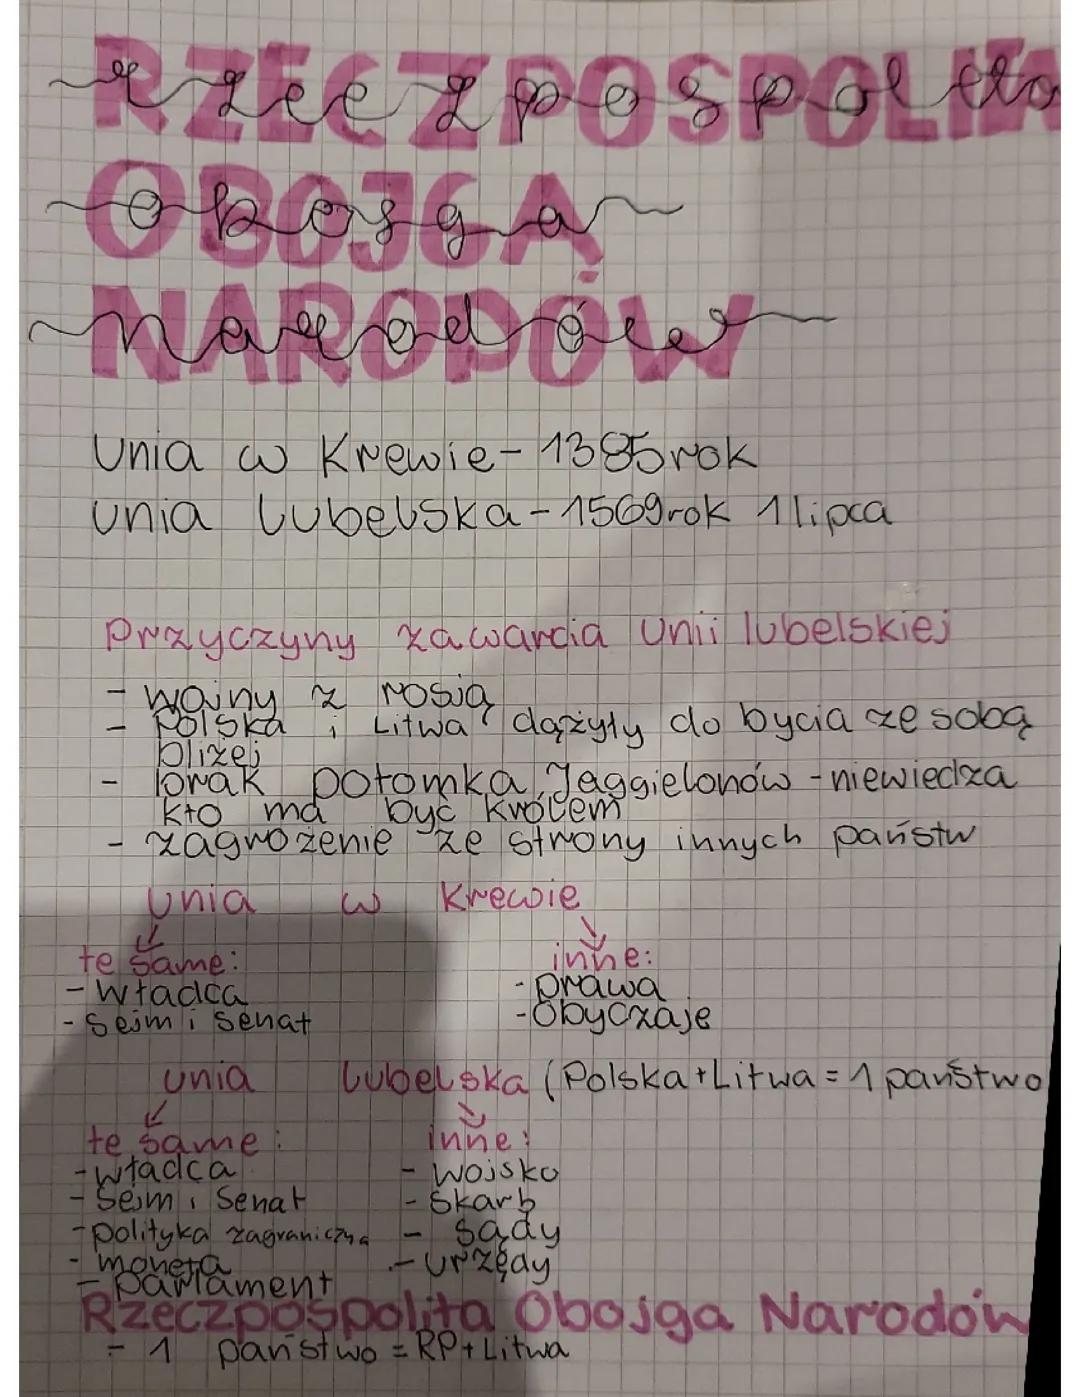 RZECZPOSPOLITA
OBOJGA
NARODÓW
Unia w Krewie - 1385 rok
Unia Lubelska - 1569 rok 1 lipca
Przyczyny zawarcia Unii lubelskiej
- wojny z rosją
- Polska i Litwa dążyły do bycia ze sobą
bliżej
- brak potomka Jaggielonów - niewiedza
kto ma być królem
- zagrożenie ze strony innych państw
Unia w Krewie
te same: inne:
- władca - prawa
- Sejm i Senat - Obyczaje
unia Lubelska (Polska + Litwa = 1 państwo
te same: inne:
- władca - wojsko
- Sejm i Senat - Skarb
- polityka zagraniczna - sądy
- moneta - urzędy
- parlament
Rzeczpospolita Obojga Narodów
- 1 państwo = RP + Litwa